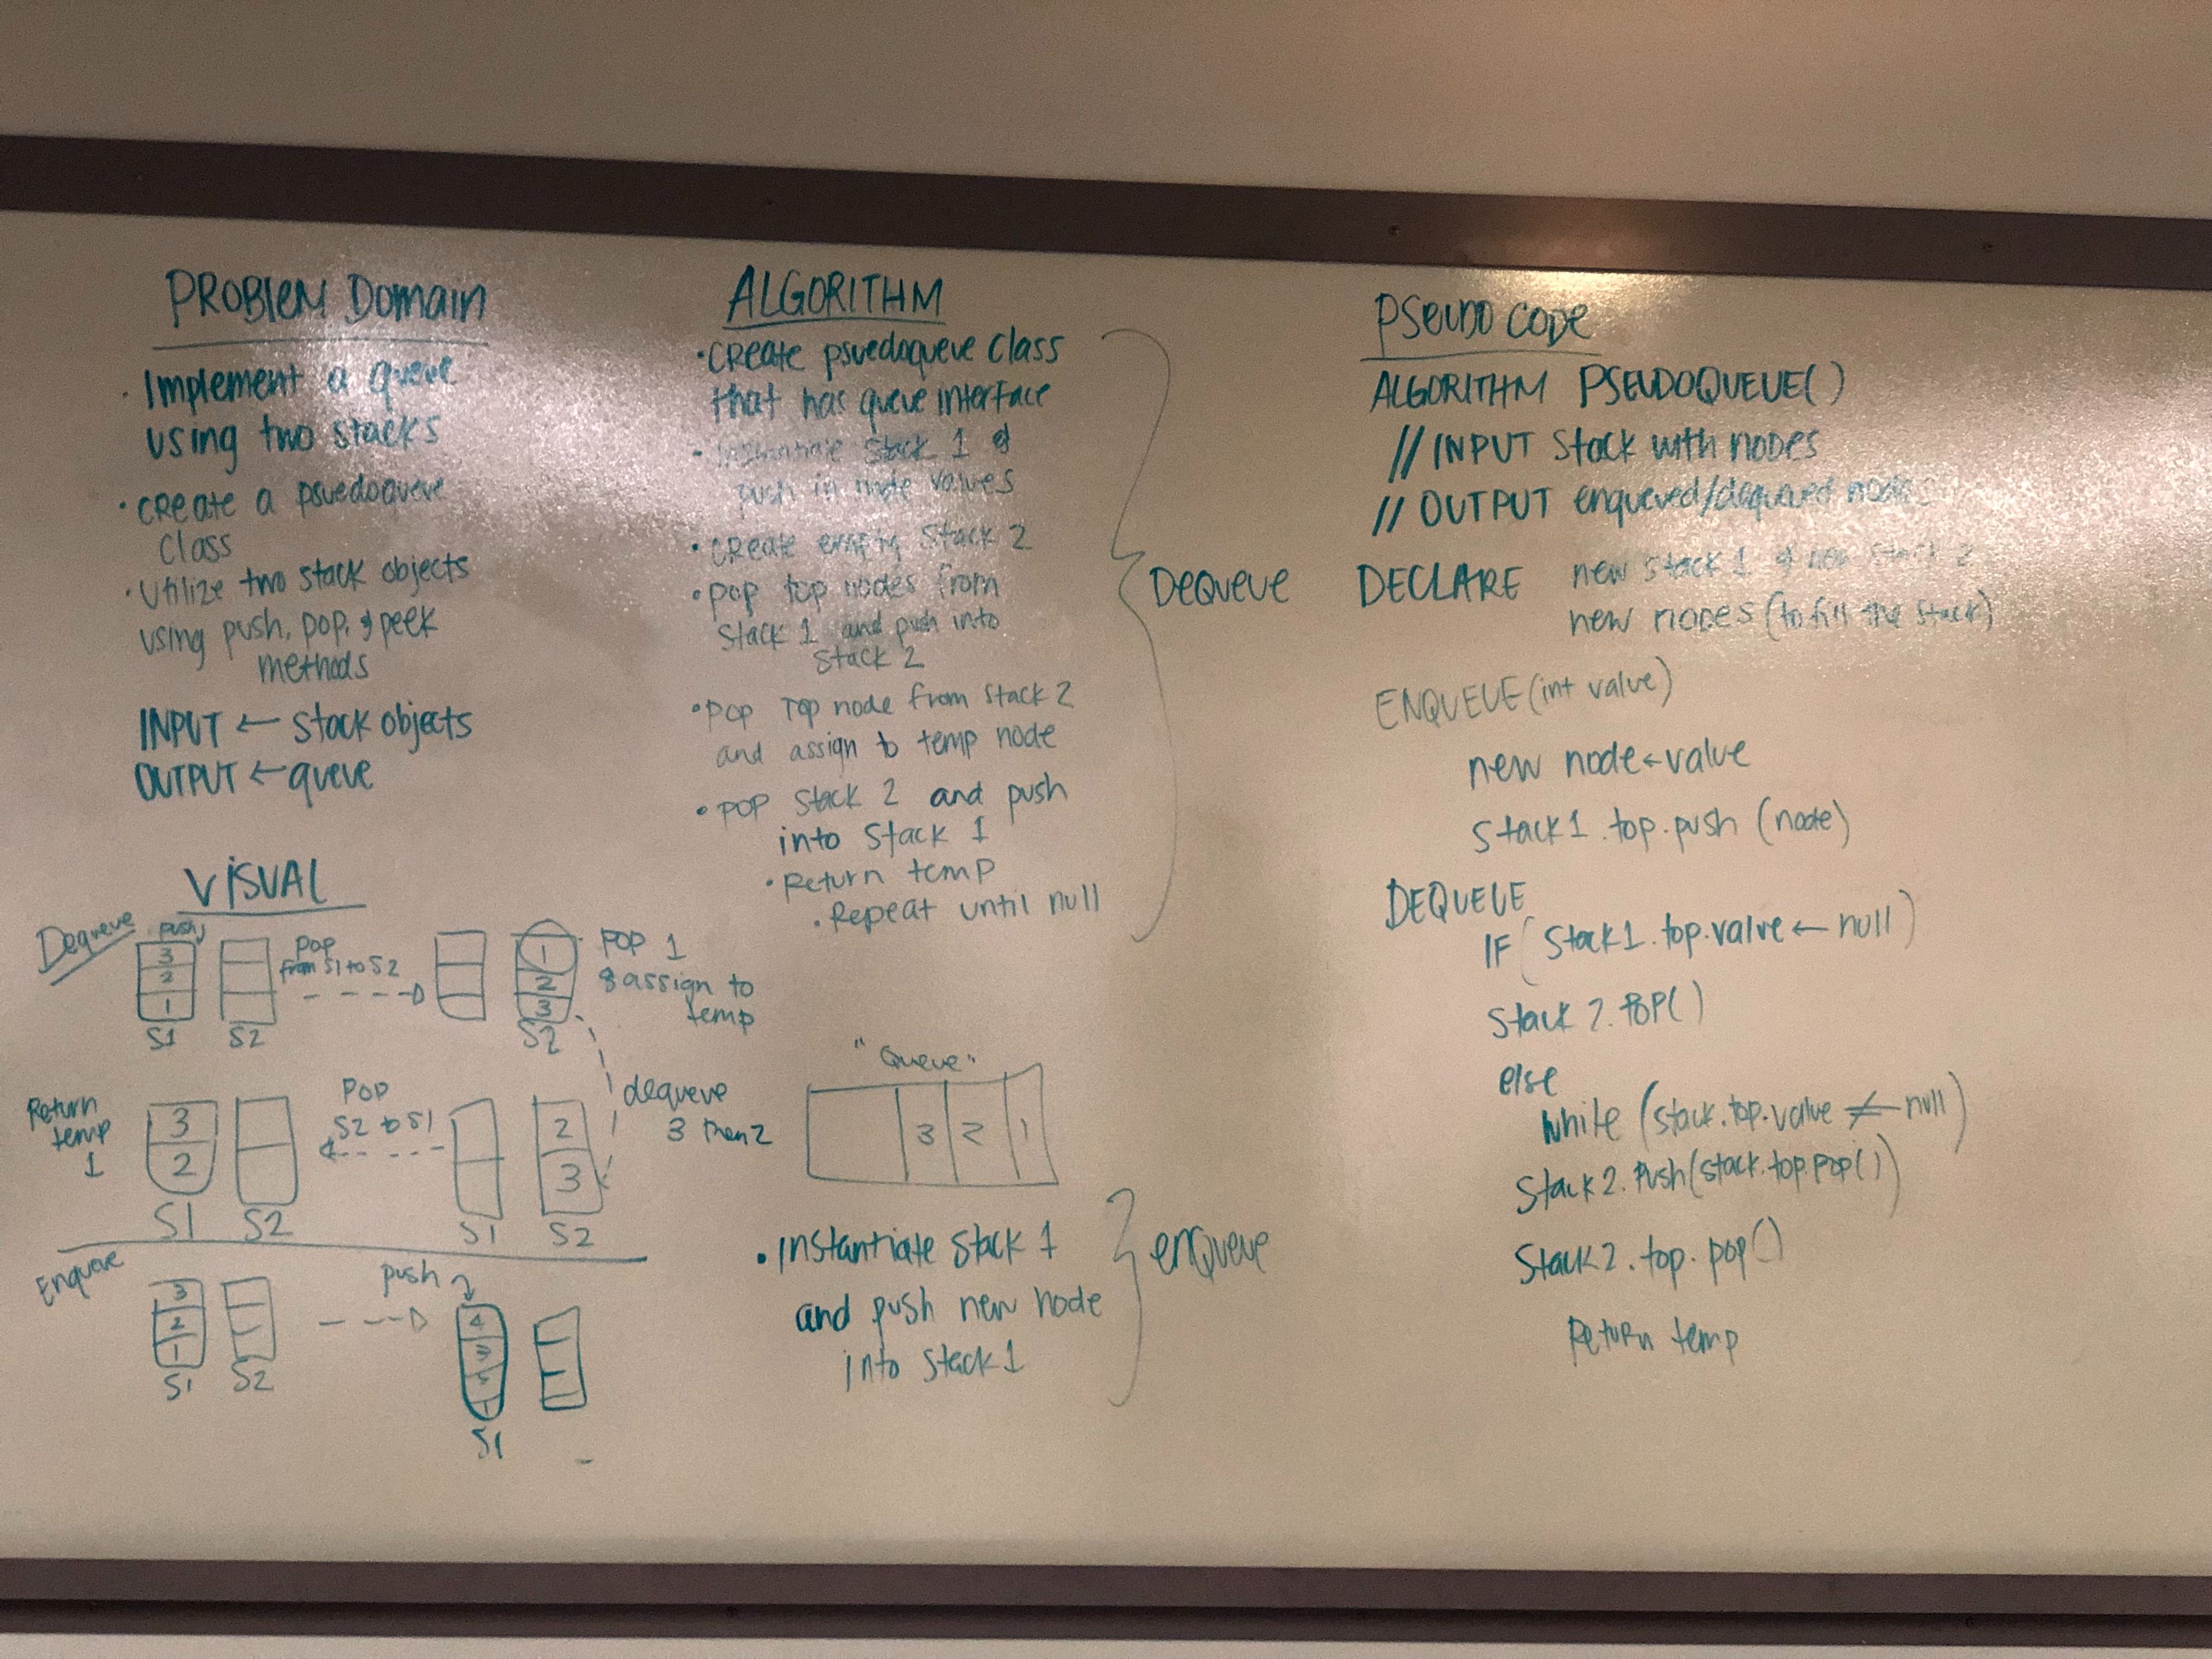 PROBLEM Domain
· Implement a queue
using two stacks
· create a psuedoqueve
class
· Utilize two stack objects
using push, pop, & peek
methods
INPUT ← stack objects
OUTPUT ← queue
VISUAL
Dequeve
push
3
2
1
S1
S2
POP
from S1 to S2
1
2
3
S2
POP 1
& assign to
temp
Return
temp
1
3
2
S1
S2
POP
S2 to S1
S1
2
3
S2
dequeve
3 then 2
Enqueve
3
2
1
S1
S2
push
4
3
1
S1
ALGORITHM
· create psuedoqueve class
that has queve interface
· instantiate stack 1 &
push in node values
· create empty stack 2
· pop top nodes from
stack 1 and push into
stack 2
· POP TOP node from stack 2
and assign to temp node
· POP stack 2 and push
into stack 1
· Return temp
· Repeat until null
DEQUEVE
"Queve"
3 2 1
· Instantiate stack 1
and push new node
into stack 1
enqueve
PSEUDO CODE
ALGORITHM PSEUDOQUEUE()
// INPUT stack with nodes
// OUTPUT enqueued/dequeued nodes
DECLARE new stack 1 & new stack 2
new nodes (to fill the stack)
ENQUEUE (int value)
new node ← value
stack1.top.push (node)
DEQUEUE
IF (stack1.top.value ← null)
stack 2.POP()
else
while (stack.top.value ≠ null)
stack 2.Push(stack.top.pop())
Stack2.top.pop()
Return temp